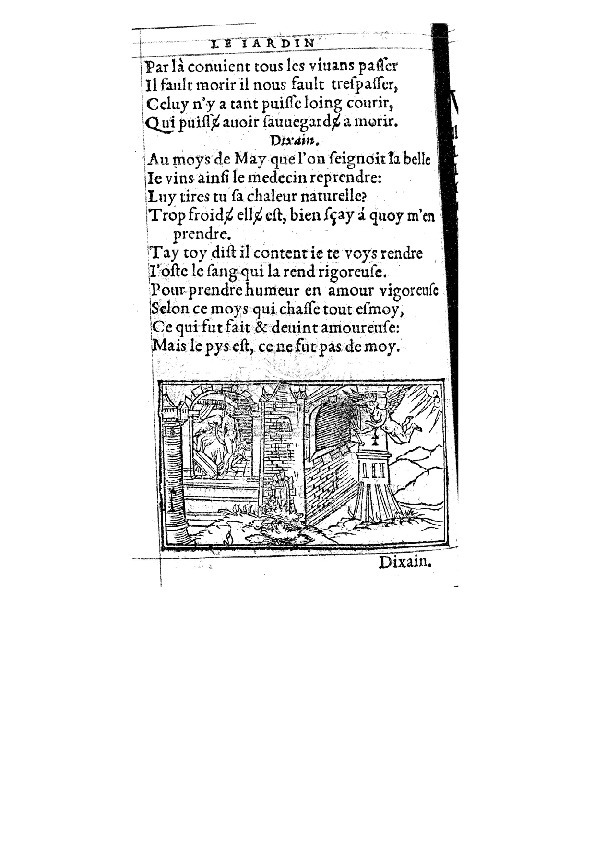 LE IARDIN
Par là conuient tous les viuans paſſer
Il fault morir il nous fault treſpaſſer,
Celuy n'y a tant puiſſe loing courir,
Qui puiſſɇ auoir ſauuegardɇ a morir.
Dixain.
Au moys de May que l'on ſeignoit la belle
Ie vins ainſi le medecin reprendre:
Luy tires tu ſa chaleur naturelle?
Trop froidɇ ellɇ eſt, bien ſçay á quoy m'en
prendre.
Tay toy diſt il content ie te voys rendre
I'oſte le ſang qui la rend rigoreuſe.
Pour prendre humeur en amour vigoreuſe
Selon ce moys qui chaſſe tout eſmoy,
Ce qui fut fait & deuint amoureuſe:
Mais le pys eſt, ce ne fut pas de moy.
Dixain.